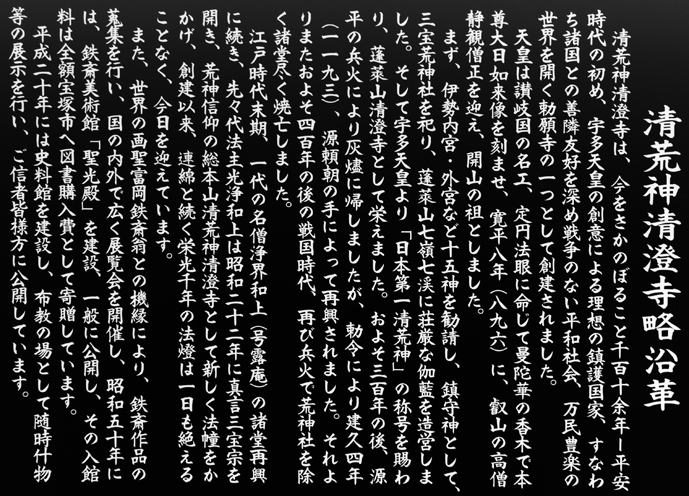 清荒神清澄寺略沿革
清荒神清澄寺は、今をさかのぼること千百十余年ー平安
時代の初め、宇多天皇の創意による理想の鎮護国家、すなわ
ち諸国との善隣友好を深め戦争のない平和社会、万民豊楽の
世界を開く勅願寺の一つとして創建されました。
天皇は讃岐国の名工、定円法眼に命じて曼陀華の香木で本
尊大日如来像を刻ませ、寛平八年(八九六)に、叡山の高僧
静観僧正を迎え、開山の祖としました。
まず、伊勢内宮・外宮など十五神を勧請し、鎮守神として、
三宝荒神社を祀り、蓬萊山七嶺七渓に荘厳な伽藍を造営しま
した。そして宇多天皇より「日本第一清荒神」の称号を賜わ
り、蓬萊山清澄寺として栄えました。およそ三百年の後、源
平の兵火により灰燼に帰しましたが、勅令により建久四年
(一一九三)、源頼朝の手によって再興されました。それよ
りまたおよそ四百年の後の戦国時代、再び兵火で荒神社を除
く諸堂尽く焼亡しました。
江戸時代末期、一代の名僧浄界和上(号露庵)の諸堂再興
に続き、先々代法主光浄和上は昭和二十二年に真言三宝宗を
開き、荒神信仰の総本山清荒神清澄寺として新しく法幢をか
かげ、創建以来、連綿と続く栄光千年の法燈は一日も絶える
ことなく、今日を迎えています。
また、世界の画聖富岡鉄斎翁との機縁により、鉄斎作品の
蒐集を行い、国の内外で広く展覧会を開催し、昭和五十年に
は、鉄斎美術館「聖光殿」を建設、一般に公開し、その入館
料は全額宝塚市へ図書購入費として寄贈しています。
平成二十年には史料館を建設し、布教の場として随時什物
等の展示を行い、ご信者皆様方に公開しています。